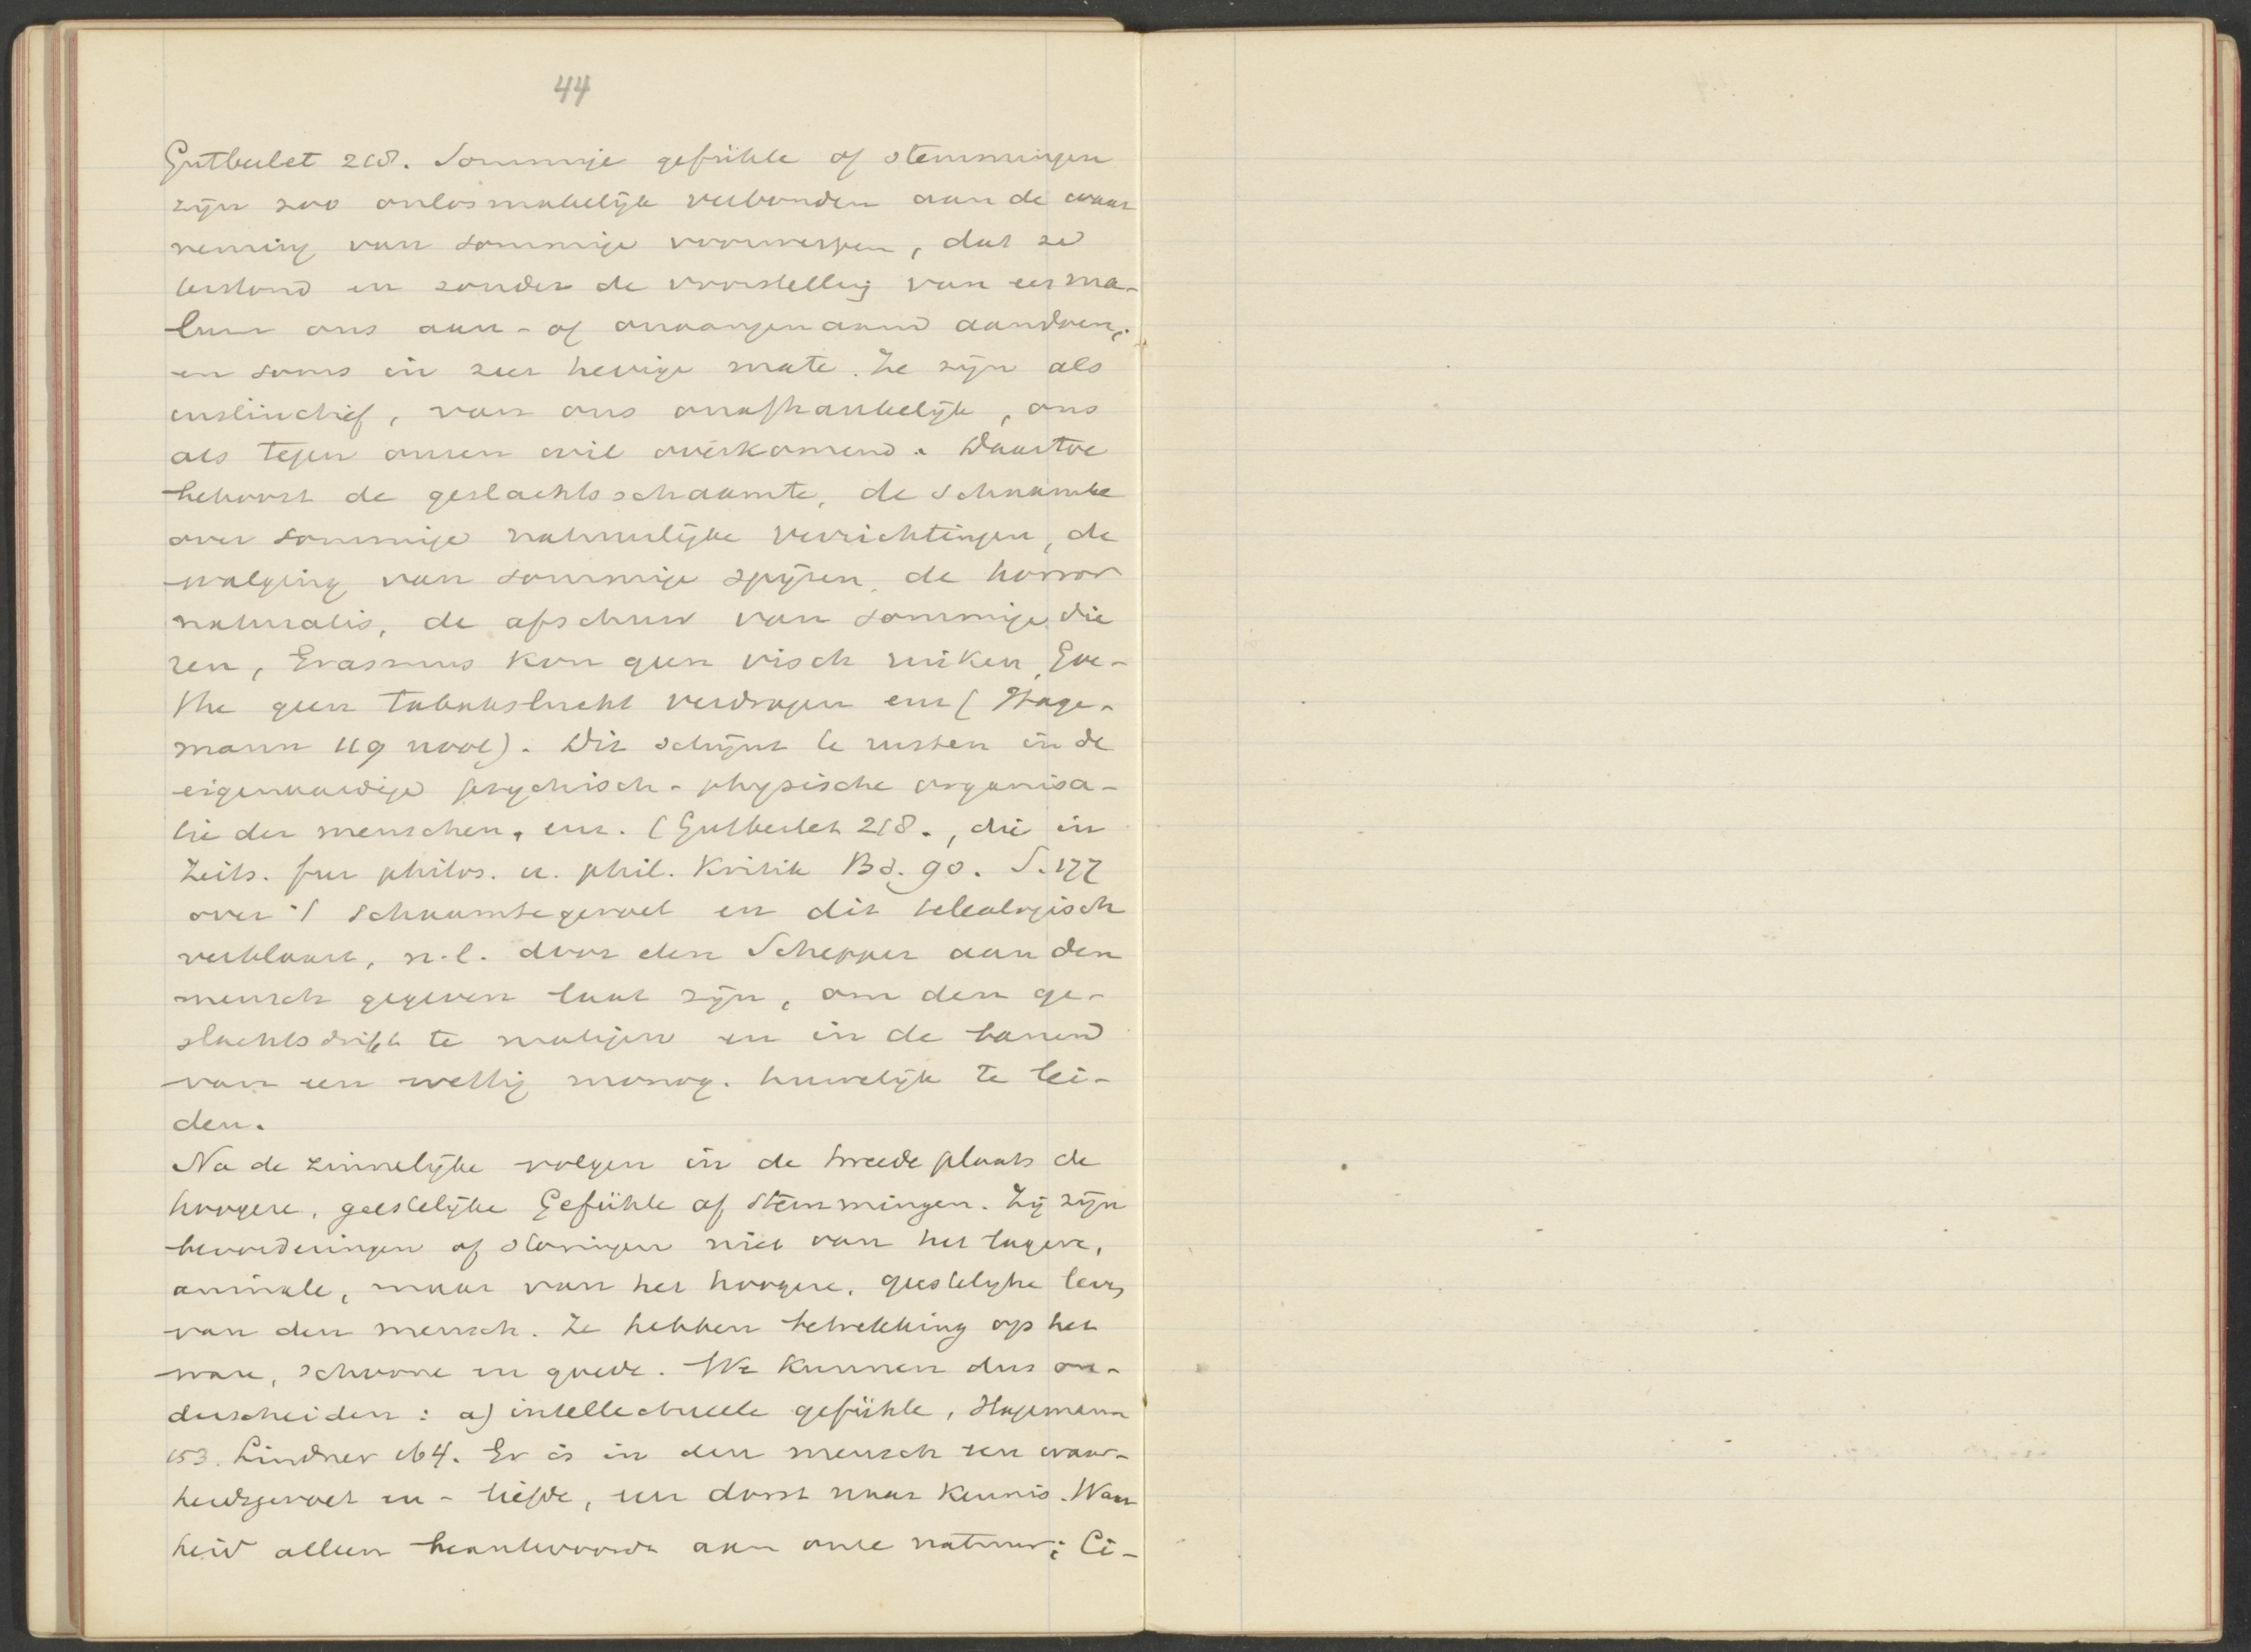 44
Gutberlet 218. Sommige gefühle of stemmingen
zijn zoo onlosmakelijk verbonden aan de waar
neming van sommige voorwerpen, dat ze
terstond en zonder de voorstelling van eer ma-
ons aan- of onaangenaam aandoen,
en soms in zeer hevige mate. Ze zijn als
instinctief, van ons onafhankelijk, ons
als tegen onzen wil overkomend. Daartoe
behoort de geslachtsschaamte, de schaamte
over sommige natuurlijke verrichtingen, de
walging van sommige spijzen, de horror
naturalis, de afschuw van sommige die
ren, Erasmus kon geen visch ruiken, Goe-
the geen tabakslucht verdragen enz (Hage-
mann 119 noot). Dit schijnt te rusten in de
eigenaardige psychisch-physische organisa-
tie der menschen, enz. (Gutberlet 218., die in
Zeits. fur philos. u. phil. Kritik Bd. 90. S. 177
over 't schaamtegevoel en dit teleologisch
verklaart, n.l. door den Schepper aan den
mensch gegeven laat zijn, om den ge-
slachtsdrift te matigen en in de banen
van een wettig monog. huwelijk te lei-
den.
Na de zinnelijke volgen in de tweede plaats de
hoogere, geestelijke Gefühle of stemmingen. Zij zijn
bevorderingen of storingen niet van het lagere,
animale, maar van het hoogere, geestelijke leven
van den mensch. Ze hebben betrekking op het
ware, schoone en goede. We kunnen dus on-
derscheiden: a) intellectueele gefühle, Hagemann
153. Lindner 164. Er is in den mensch een waar-
heidsgevoel en -liefde, een dorst naar kennis. Waar
heid alleen beantwoordt aan onze natuur; Ci-